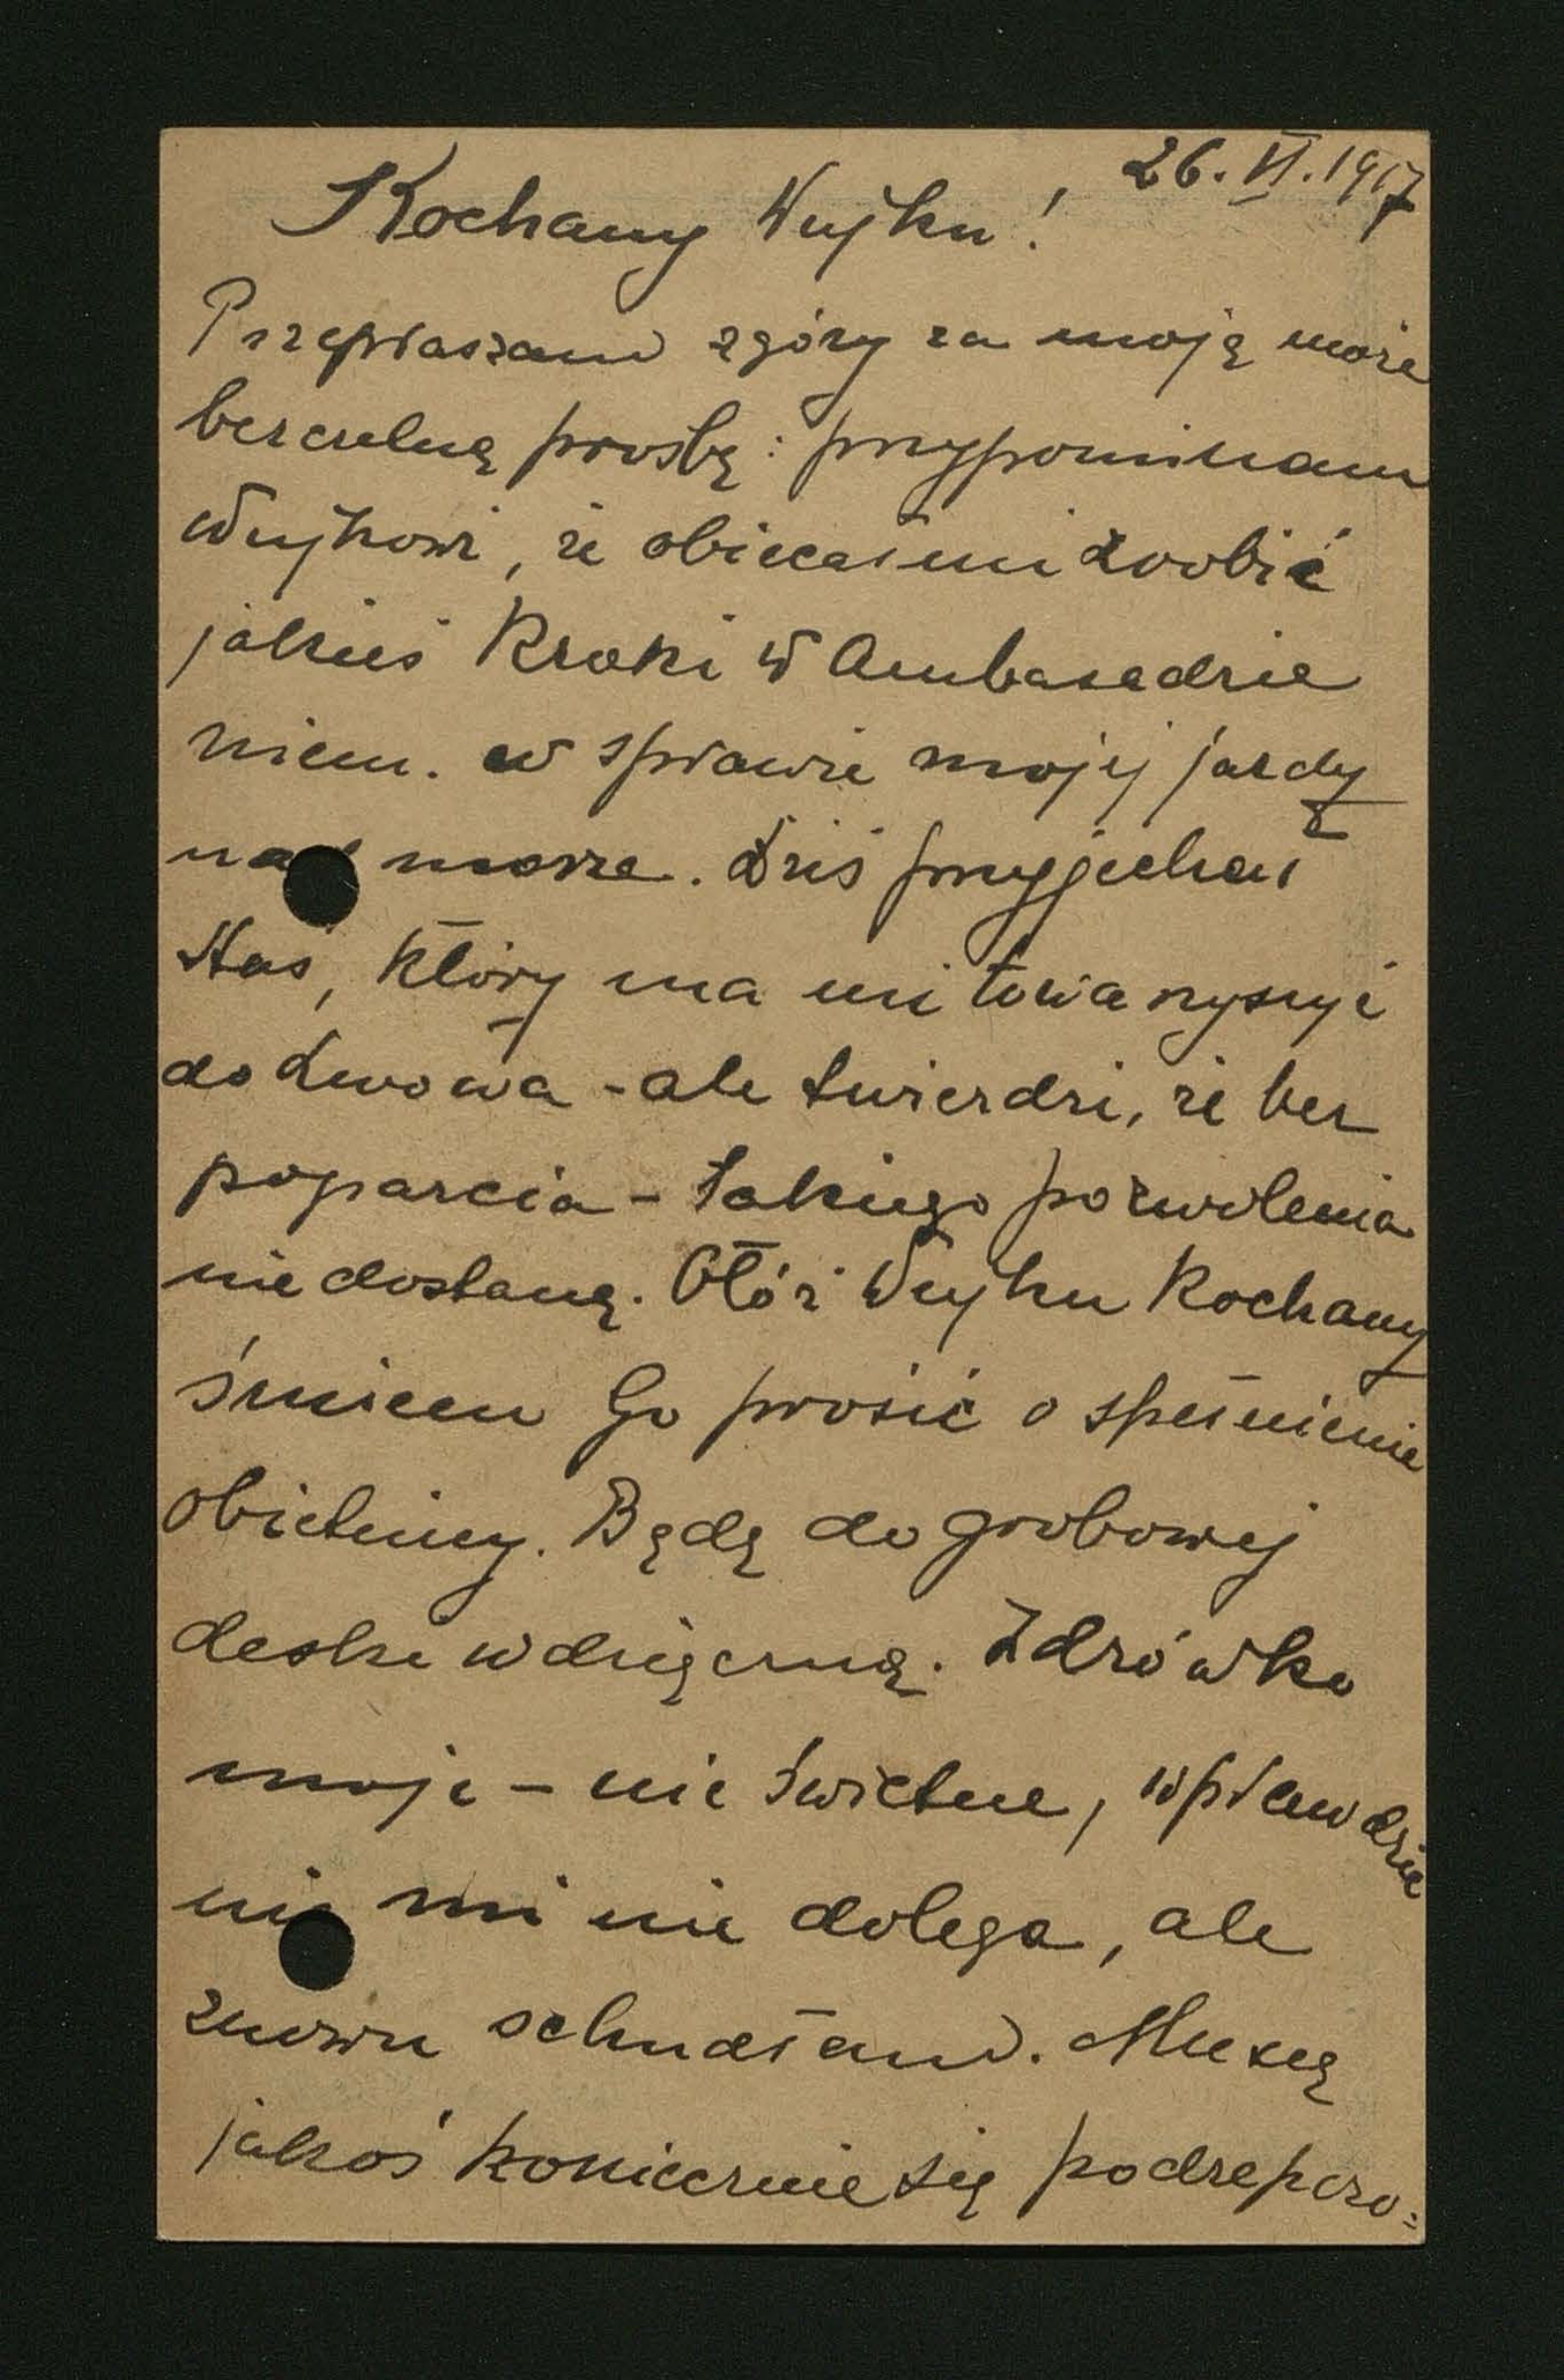 26. VI. 1917
Kochany Wujku!
Przepraszam zgóry za moją może
bezczelną prośbę: przypominam
Wujkowi, że obiecał mi zrobić
jakieś kroki w Ambasadzie
niem. w sprawie mojej jazdy
nad morze. Dziś przyjechał
Staś, który ma mi towarzyszyć
do Lwowa - ale twierdzi, że bez
poparcia - takiego pozwolenia
nie dostanę. Otóż Wujku Kochany
śmiem Go prosić o spełnienie
obietnicy. Będę do grobowej
deski wdzięczną. Zdrówko
moje - nie świetne, wprawdzie
nic mi nie dolega, ale
znowu schudłam. Muszę
jakoś koniecznie się podreparo=